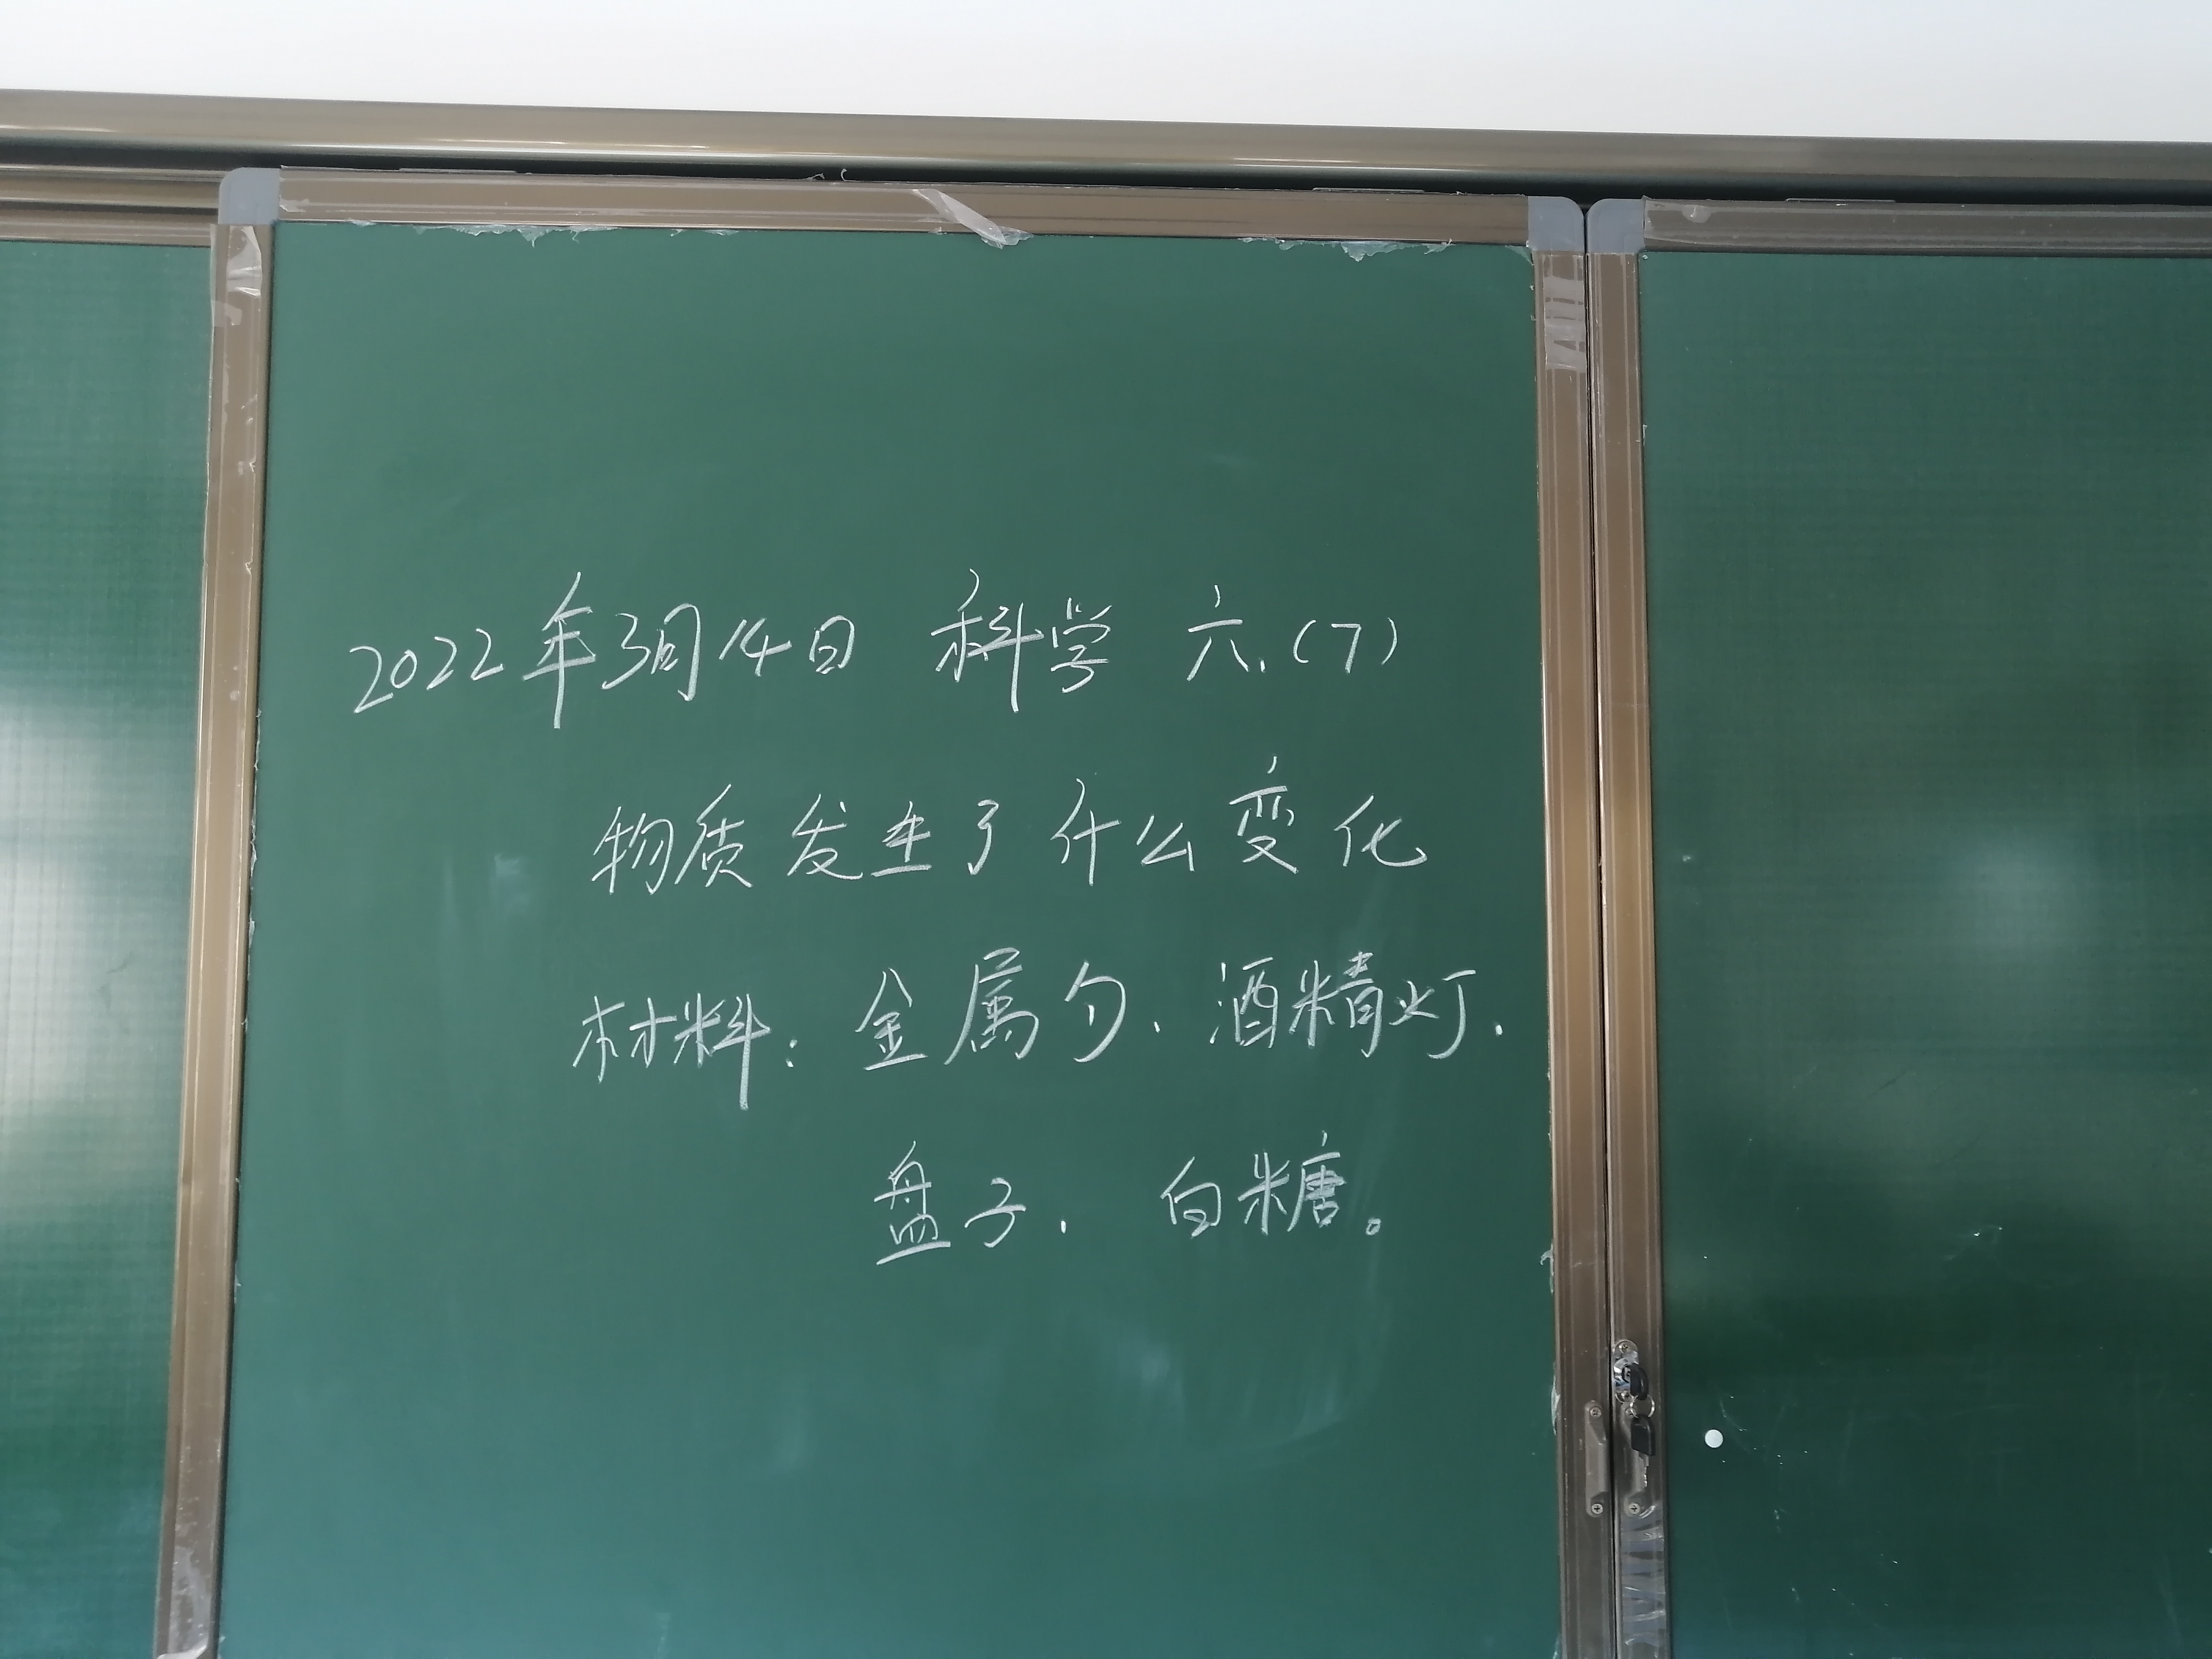 2022年3月14日 科学 六.(7)
物质发生了什么变化
材料：金属勺.酒精灯.
盘子. 白糖。